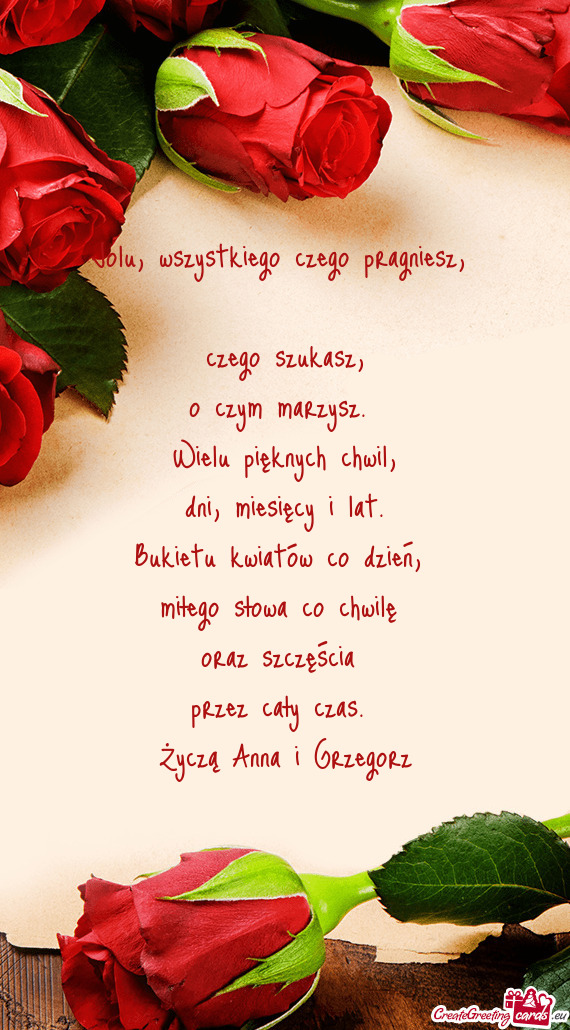 Jolu, wszystkiego czego pragniesz,
czego szukasz,
o czym marzysz.
Wielu pięknych chwil,
dni, miesięcy i lat.
Bukietu kwiatów co dzień,
miłego słowa co chwilę
oraz szczęścia
przez cały czas.
Życzą Anna i Grzegorz
CreateGreetingcards.eu